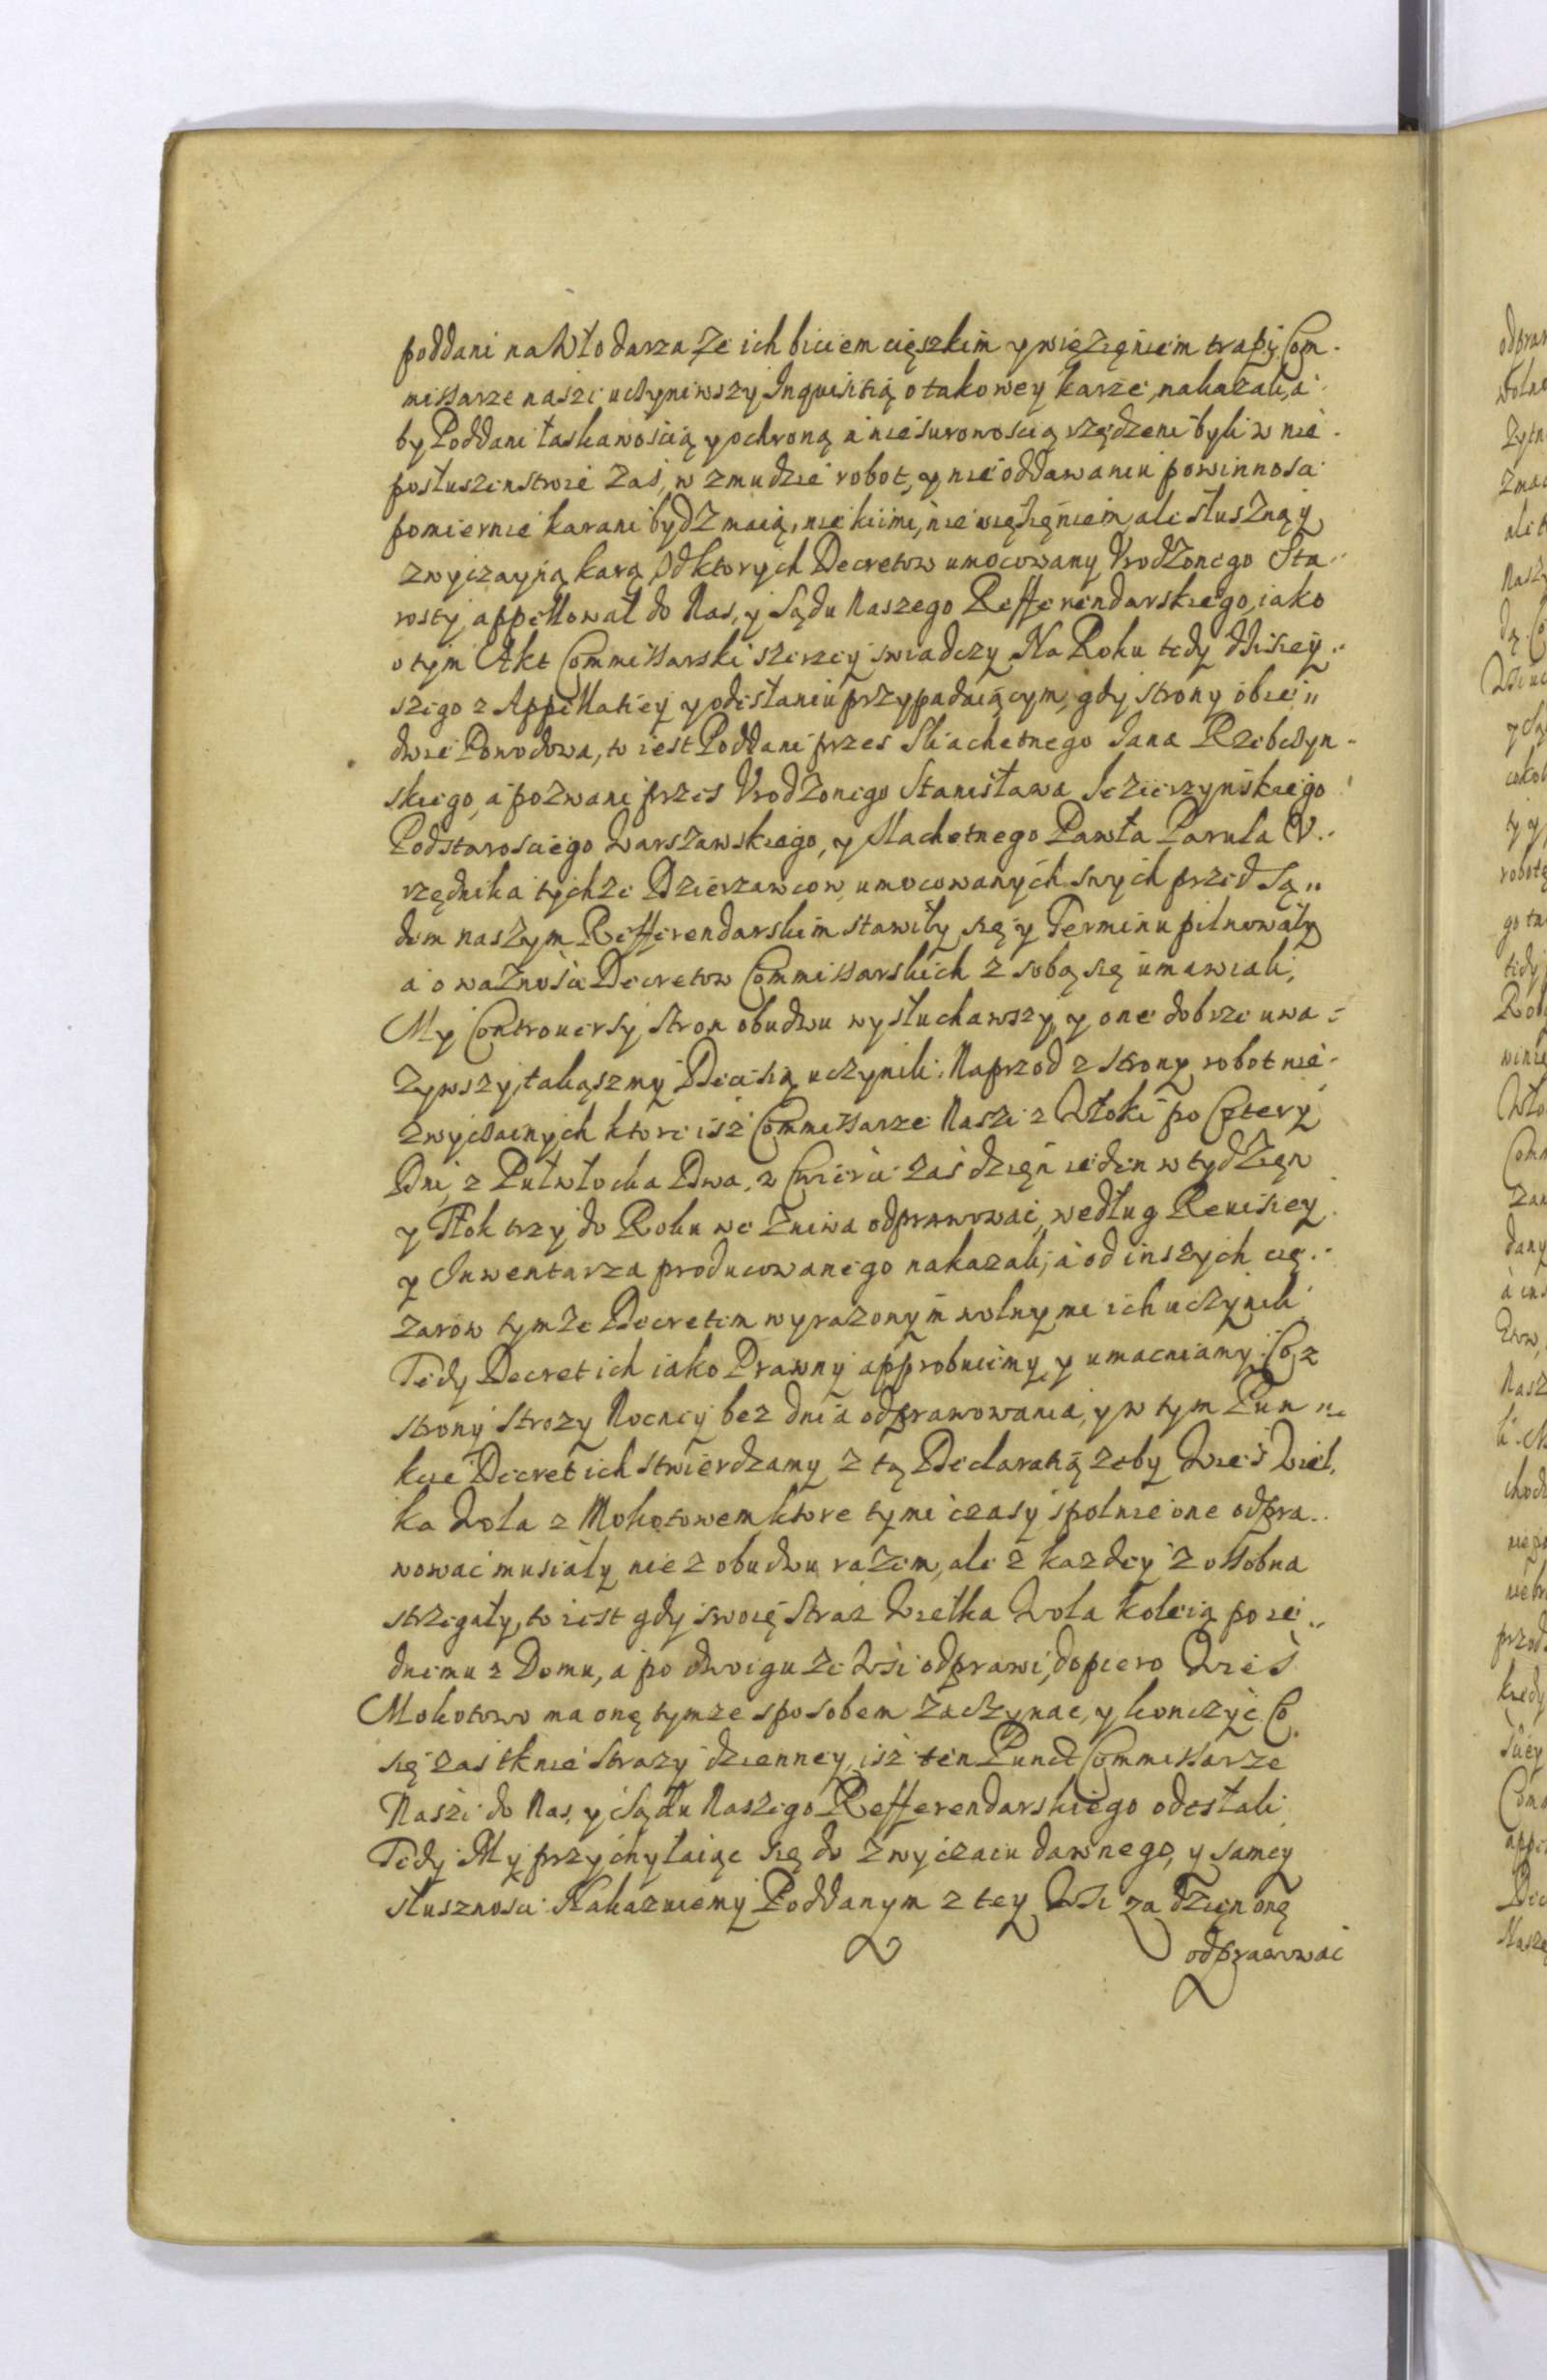 poddani na Włodarza że ich biciem cięszkim y więzięniem trapi, Com-
missarze naszi uczyniwszy Inquisitią o takowey karze, nakazali, a
by Poddani łaskawoscią y ochroną a nie surowoscią rządzeni byli w nie-
posłuszenstwie zaś, w zmudzie robot, y nie oddawaniu powinnosci
pomiernie karani bydz maią, nie kiimi, nie więzięniem, ale słuszną y
zwyczayną karą, Od ktorych Decretow umocowany Vrodzonego Sta-
rosty, appellował do Nas, y Sądu Naszego Refferendarskiego, iako
o tym Akt Commissarski szerzey swiadczy. Na Roku tedy dzisiey-
szego z Appellatiey y odesłaniu przypadaiącym, gdy strony obie
dwie Powodowa, to iest Poddani przes Sliachetnego Jana Rzebczyn-
skiego, a pozwani przes Vrodzonego Stanisława Jezierzynskiego
Podstarosciego Warszawskiego, y Slachetnego Pawła Parula V-
rzędnika tychże Dzierzawcow, umocowanych swych przed Są-
dem naszym Refferendarskim stawiły się y Terminu pilnowały
a o ważnosci Decretow Commissarskich z sobą się umawiali,
My Controuersy stron obudwu wysłuchawszy, y one dobrze uwa-
żywszy, takąszmy Decisią uczynili. Naprzod z strony robot nie-
zwyczainych ktore isz Commissarze Naszi z Włoki po Cztery
Dni, z Pułwłocka Dwa, z Cwierci zaś dzięn ieden w tydzięn
y Tłok trzy do Roku we Zniwa odprawowac, według Reuisiey
y Inwentarza producowanego nakazali, a od inszych cię-
zarow tymze Decretem wyrazonym wolnymi ich uczynili
Tedy Decret ich iako Prawny approbuiemy, y umacniamy. Co z
strony Strozy Nocney bez dnia odprawowania, y w tym Pun
kcie Decret ich stwierdzamy z tą Declaratią zeby Wieś Wiel-
ka Wola z Mokotowem ktore tymi czasy spolnie one odpra-
wować musiały nie z obudwu razem, ale z kazdey z ossobna
strzegały, to iest gdy swoię Straż Wielka Wola koleią po ie-
dnemu z Domu, a po dwoigu ze Wsi odprawi, dopiero Wieś
Mokotowo ma onę tymze sposobem zaczynac, y konczyć. Co
się zas tknie Strazy dzienney, isz ten Punct Commissarze
Naszi do Nas, y Sądu Naszego Refferendarskiego odesłali
Tedy My przychylaiąc się do zwyczaiu dawnego, y samey
słusznosci Nakazuiemy Poddanym z tey Wsi za dzięn onę
odprawowac